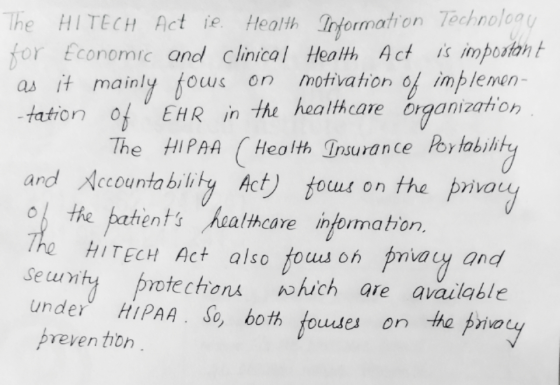 The HITECH Act ie. Health Information Technology
for Economic and clinical Health Act is important
as it mainly fows on motivation of implemen-
-tation of EHR in the healthcare organization.
The HIPAA (Health Insurance Portability
and Accountability Act) focus on the privacy
of the patient's healthcare information.
The HITECH Act also focus on privacy and
security protections which are available
under HIPAA. So, both fouses on the privacy
prevention.